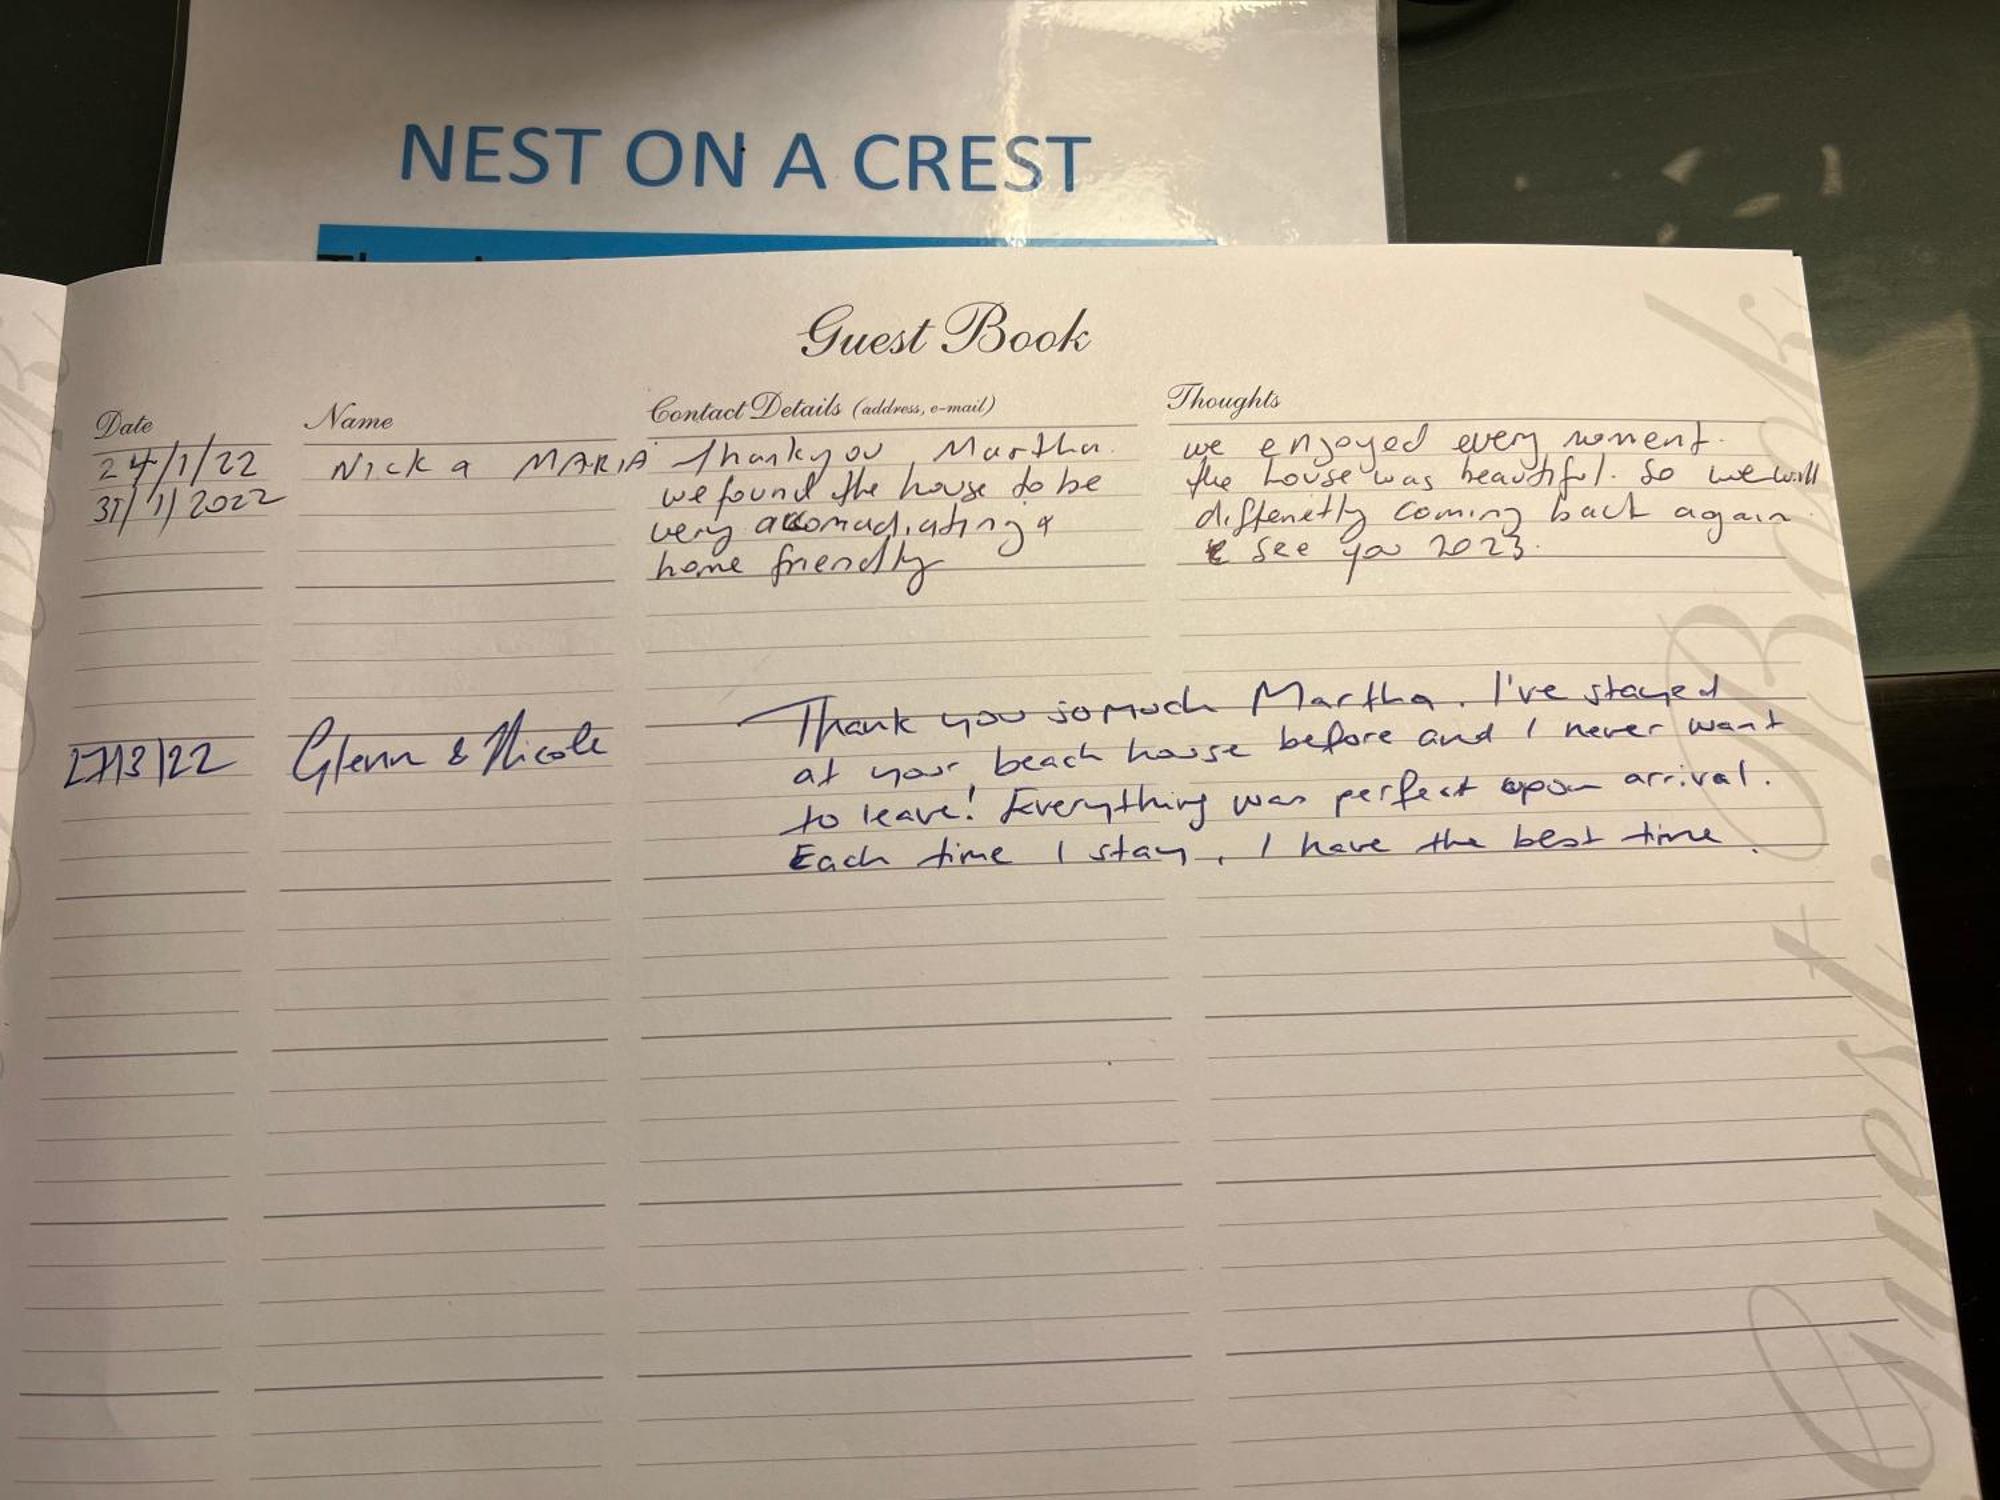 NEST ON A CREST
Guest Book
Date Name Contact Details (address, e-mail) Thoughts
24/1/22 Nick & MARIA Thankyou Martha. we enjoyed every moment.
31/1/2022 we found the house to be the house was beautiful. So we will
very accomadiating & diffenetly coming back again.
home friendly & see you 2023.
Thank you so much Martha. I've stayed
27/3/22 Glenn & Nicole at your beach house before and I never want
to leave! Everything was perfect upon arrival.
Each time I stay, I have the best time.
Guest Book